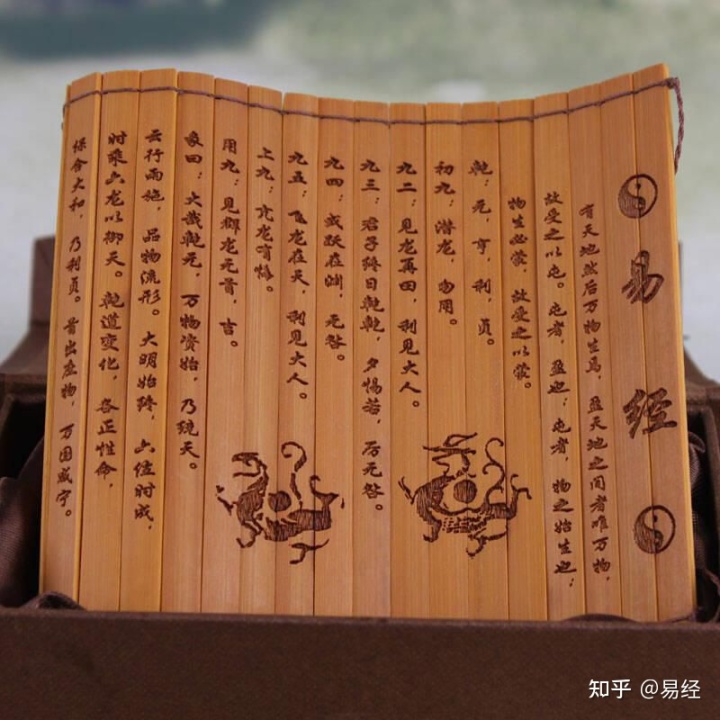 易经
有天地然后万物生焉，盈天地之间者唯万物，
故受之以屯。屯者，盈也；屯者，物之始生也；
物生必蒙，故受之以蒙。
乾，元，亨，利，贞。
初九：潜龙，勿用。
九二：见龙再田，利见大人。
九三：君子终日乾乾，夕惕若，厉无咎。
九四：或跃在渊，无咎。
九五：飞龙在天，利见大人。
上九：亢龙有悔。
用九：见群龙无首，吉。
彖曰：大哉乾元，万物资始，乃统天。
云行雨施，品物流形。大明始终，六位时成，
时乘六龙以御天。乾道变化，各正性命，
保合大和，乃利贞。首出庶物，万国咸宁。
知乎 @易经